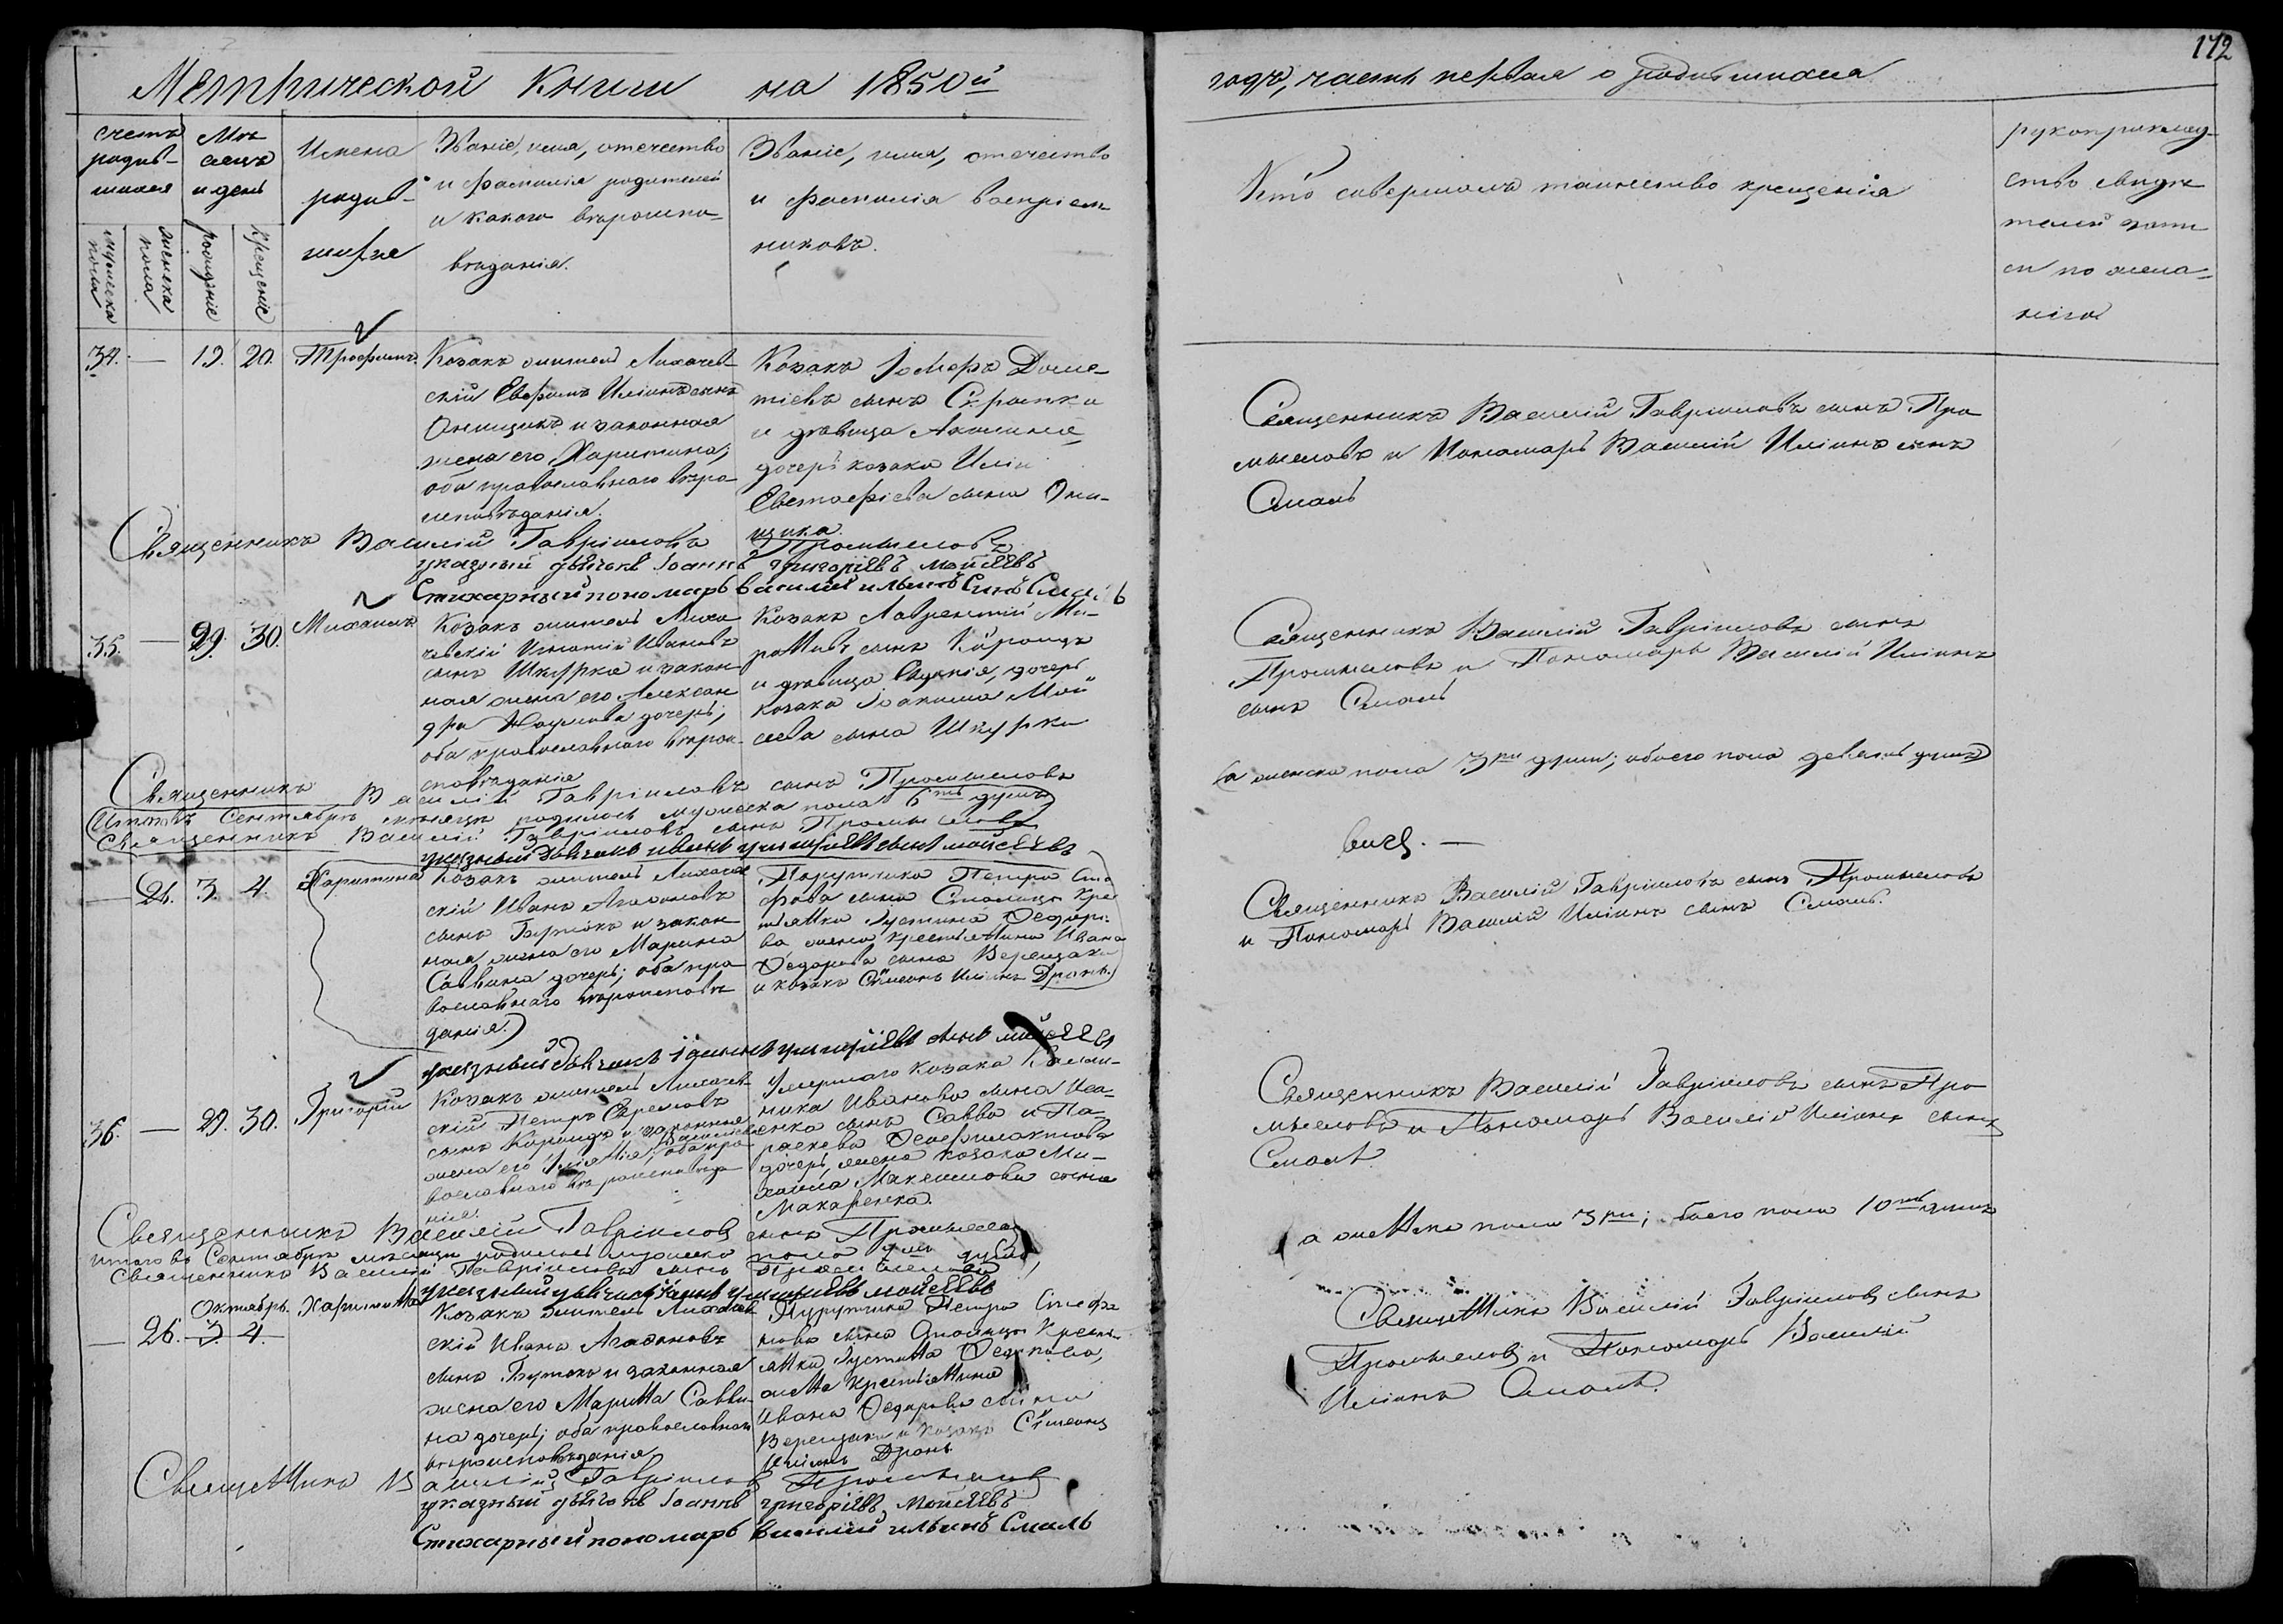 172
Метрической Книги на 1850й
годъ, часть первая о родившихся
счетъ родив-
шихся
Мѣ-
сяцъ
и день
мужеска пола
женска пола
рожденіе
крещеніе
Имена
родив-
шихся
Званіе, имя, отечество
и фамилія родителей
и какого вѣроиспо-
вѣданія.
Званіе, имя, отечество
и фамилія воспріем-
никовъ.
Кто совершалъ таинство крещенія
рукоприклад-
ство свидѣ-
телей записи
по жела-
нію
34. — 19. 20. Трофимъ.
Козакъ житель Лихачев-
скій Ефимъ Иліинъ сынъ
Онищикъ и законная
жена его Харитина,
оба православнаго вѣро-
исповѣданія.
Козакъ Доме-
тіевъ сынъ
и дѣвица Акилина,
дочерь козака Иліи
Евстафіева сына Они-
щика.
Священникъ Василій Гавріиловъ сынъ Про
мысловъ и Пономарь Василій Иліинъ сынъ
Смаль
Священникъ Василій Гавріиловъ Промысловъ
указный дьячокъ Іоаннъ григоріевъ мойсѣевъ
Стихарный пономарь василій ильинъ Синъ Смаль
35. — 29. 30. Михаилъ
Козакъ житель Лиха
чевскій Игнатій Ивановъ
сынъ Шкурка и закон
ная жена его Алексан
дра Наумова дочерь;
оба православнаго вѣрои
сповѣданія
Козакъ Лаврентій Ми-
роновъ сынъ
и дѣвица Евдокія, дочерь
козака Іоакима Мой
сеева сына Шкурки
Священникъ Василій Гавріиловъ сынъ
Промысловъ и Пономарь Василій Иліинъ
сынъ Смаль
Священникъ Василій Гавріиловъ сынъ Промысловъ
Итогъ Сентябрѣ мѣсяцѣ родилось мужеска пола 6ть душъ
а женска пола 3ри души; обоего пола девять душъ
Священникъ Василій Гавріиловъ сынъ Промысловъ
указный дьячокъ григоріевъ сынъ мойсѣевъ
— 26. 3. 4. Харитина
Козакъ житель Лихачев
скій Иванъ Агафоновъ
сынъ и закон
ная жена его Марина
Саввина дочерь; оба пра
вославнаго вѣроисповѣ
данія.
Поручика Петра Сте
фанова сына Кре
стьянка Іустина Ѳедоро-
ва жена крестьянина Ивана
Ѳедорова сына Верещаки
и козакъ Сѵмеонъ Иліинъ Дронь.
Священникъ Василій Гавріиловъ сынъ Промысловъ
и Пономарь Василій Иліинъ сынъ Смаль.
указный дьячокъ іоаннъ григоріевъ сынъ мойсѣевъ
36. — 29. 30. Григорій
Козакъ житель Лихачев-
скій Петръ Ефремовъ
сынъ и законная
жена его Васильева; оба пра
вославнаго вѣроисповѣда
нія.
Умершаго козака
Иванова сына Иса-
енка сынъ Савва и Па-
раскева Ѳеофилактова
дочерь, жена козака Ми-
хаила Максимова сына
Макаренка.
Священникъ Василій Гавріиловъ сынъ Про
мысловъ и Пономарь Василій Иліинъ сынъ
Смаль
Священникъ Василій Гавріиловъ сынъ Промысловъ
итого въ Сентябрѣ мѣсяцѣ родилось мужеска пола 7мь душъ,
а женска пола 3ри; обоего пола 10ть душъ
Священникъ Василій Гавріиловъ сынъ Промысловъ
указный дьячокъ іоаннъ григоріевъ мойсѣевъ
Октябрь.
— 26. 3. 4. Харитина
Козакъ житель Лихачев
скій Иванъ Агафоновъ
сынъ и законная
жена его Марина Савви-
на дочерь; оба православнаго
вѣроисповѣданія
Поручика Петра Стефа
нова сына Кресть-
янка Іустина Ѳедорова,
жена крестьянина
Ивана Ѳедорова сына
Верещаки и козакъ Сѵмеонъ
Иліинъ Дронь
Священникъ Василій Гавріиловъ сынъ
Промысловъ и Пономарь Василій
Иліинъ Смаль.
Священникъ Василій Гавріиловъ Промысловъ
указный дьячокъ Іоаннъ григоріевъ мойсѣевъ
Стихарный пономарь василий ильинъ Смаль